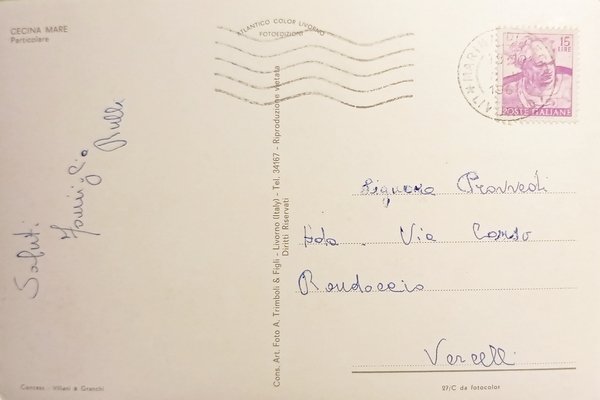 CECINA MARE
Particolare
ATLANTICO COLOR LIVORNO
FOTOEDIZIONI
15
LIRE
POSTE ITALIANE
Saluti
Famiglia
Cons. Art. Foto A. Trimboli & Figli - Livorno (Italy) - Tel. 34167 - Riproduzione vietata
Diritti Riservati
Signora Provvedi
Via
Vercelli
Concess. - Villani & Granchi
27/C da fotocolor